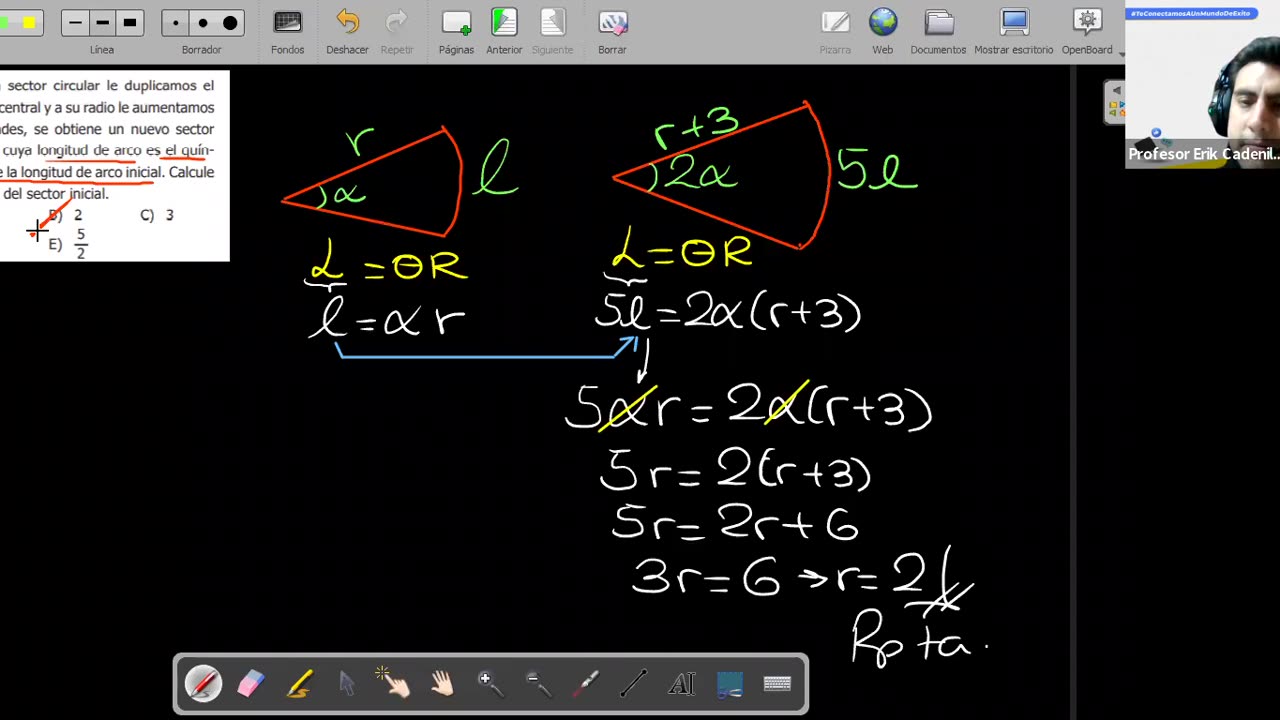 Línea
Borrador
Fondos
Deshacer
Repetir
Páginas
Anterior
Siguiente
Borrar
Pizarra
Web
Documentos
Mostrar escritorio
OpenBoard
#TeConectamosAUnMundoDeExito
Profesor Erik Cadenil...
sector circular le duplicamos el
central y a su radio le aumentamos
se obtiene un nuevo sector
cuya longitud de arco es el quín-
la longitud de arco inicial. Calcule
del sector inicial.
B) 2 C) 3
E) 5/2
r
α
l
r+3
2α
5l
L = θR
l = α r
L = θR
5l = 2α(r+3)
5αr = 2α(r+3)
5r = 2(r+3)
5r = 2r + 6
3r = 6 → r = 2
Rpta.
AI